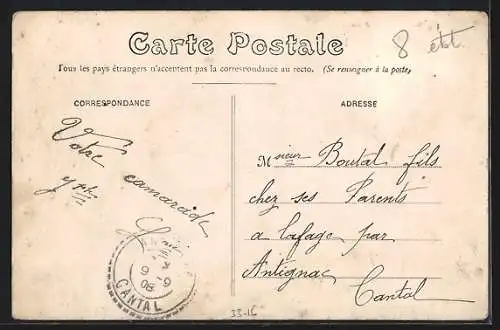 8 ébt
Carte Postale
Tous les pays étrangers n'acceptent pas la correspondance au recto. (Se renseigner à la poste,
CORRESPONDANCE
ADRESSE
Votre camarade
Msieur Boutal fils
chez ses Parents
a lafage par
Antignac
Cantal
CANTAL
33-16